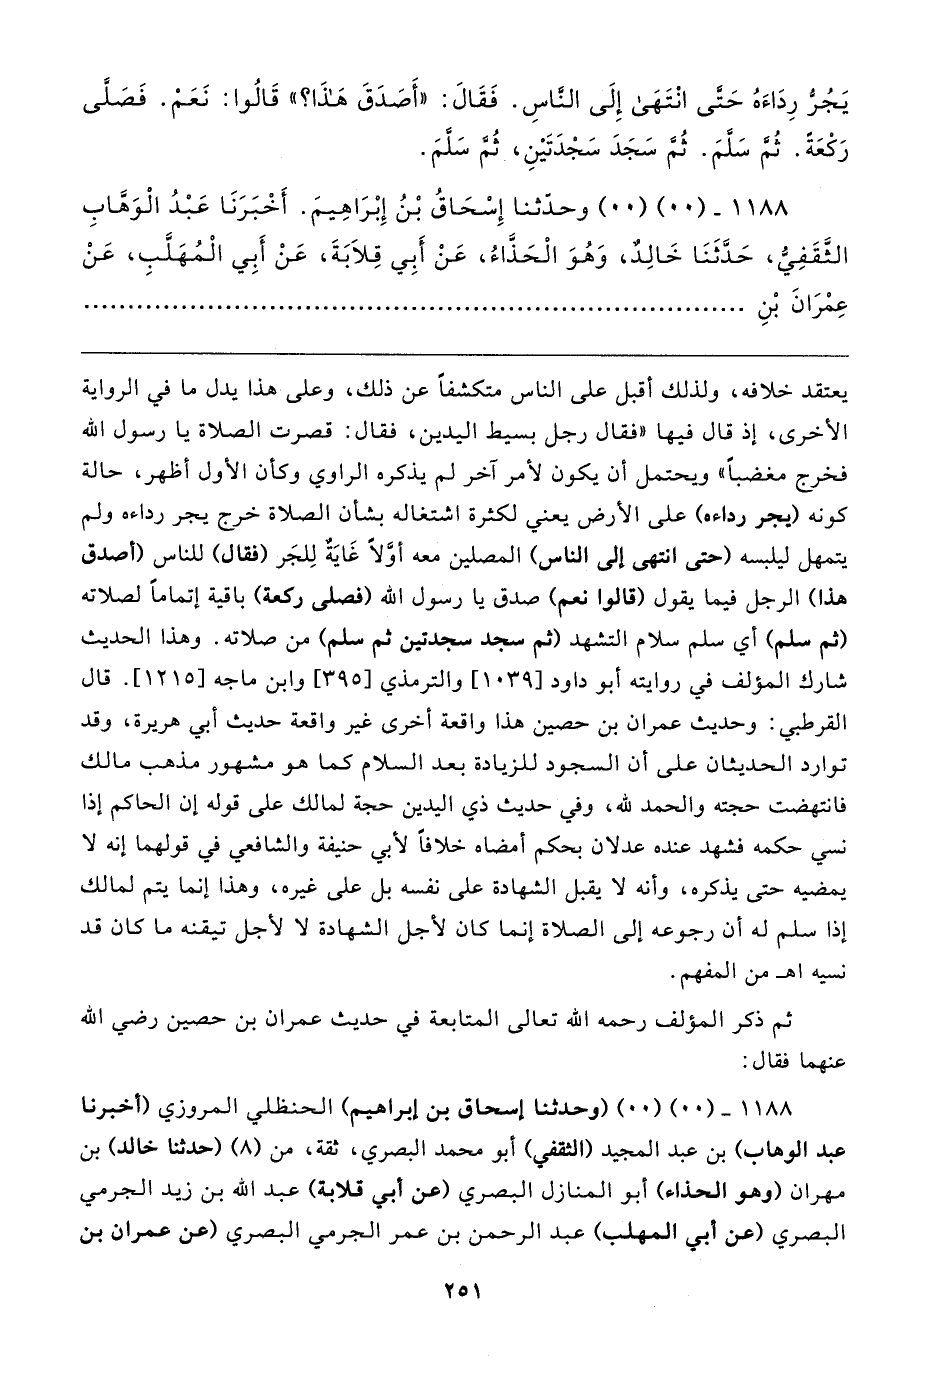 يَجُرُّ رِدَاءَهُ حَتَّى انْتَهَىٰ إِلَى النَّاسِ. فَقَالَ: «أَصَدَقَ هَذَا؟» قَالُوا: نَعَمْ. فَصَلَّى
رَكْعَةً. ثُمَّ سَلَّمَ. ثُمَّ سَجَدَ سَجْدَتَيْنِ، ثُمَّ سَلَّمَ.
١١٨٨ ـ (٠٠) (٠٠) وحدّثنا إِسْحَاقُ بْنُ إِبْرَاهِيمَ. أَخْبَرَنَا عَبْدُ الْوَهَّابِ
الثَّقَفِيُّ، حَدَّثَنَا خَالِدٌ، وَهُوَ الْحَذَّاءُ، عَنْ أَبِي قِلَابَةَ، عَنْ أَبِي الْمُهَلَّبِ، عَنْ
عِمْرَانَ بْنِ ..............................................................................
يعتقد خلافه، ولذلك أقبل على الناس متكشفاً عن ذلك، وعلى هذا يدل ما في الرواية
الأخرى، إذ قال فيها «فقال رجل بسيط اليدين، فقال: قصرت الصلاة يا رسول الله
فخرج مغضباً» ويحتمل أن يكون لأمر آخر لم يذكره الراوي وكأن الأول أظهر، حالة
كونه (يجر رداءه) على الأرض يعني لكثرة اشتغاله بشأن الصلاة خرج يجر رداءه ولم
يتمهل ليلبسه (حتى انتهى إلى الناس) المصلين معه أوَّلاً غَايَةٌ لِلجَر (فقال) للناس (أصدق
هذا) الرجل فيما يقول (قالوا نعم) صدق يا رسول الله (فصلى ركعة) باقية إتماماً لصلاته
(ثم سلم) أي سلم سلام التشهد (ثم سجد سجدتين ثم سلم) من صلاته. وهذا الحديث
شارك المؤلف في روايته أبو داود [١٠٣٩] والترمذي [٣٩٥] وابن ماجه [١٢١٥]. قال
القرطبي: وحديث عمران بن حصين هذا واقعة أخرى غير واقعة حديث أبي هريرة، وقد
توارد الحديثان على أن السجود للزيادة بعد السلام كما هو مشهور مذهب مالك
فانتهضت حجته والحمد لله، وفي حديث ذي اليدين حجة لمالك على قوله إن الحاكم إذا
نسي حكمه فشهد عنده عدلان بحكم أمضاه خلافاً لأبي حنيفة والشافعي في قولهما إنه لا
يمضيه حتى يذكره، وأنه لا يقبل الشهادة على نفسه بل على غيره، وهذا إنما يتم لمالك
إذا سلم له أن رجوعه إلى الصلاة إنما كان لأجل الشهادة لا لأجل تيقنه ما كان قد
نسيه اهـ من المفهم.
ثم ذكر المؤلف رحمه الله تعالى المتابعة في حديث عمران بن حصين رضي الله
عنهما فقال:
١١٨٨ ـ (٠٠) (٠٠) (وحدثنا إسحاق بن إبراهيم) الحنظلي المروزي (أخبرنا
عبد الوهاب) بن عبد المجيد (الثقفي) أبو محمد البصري، ثقة، من (٨) (حدثنا خالد) بن
مهران (وهو الحذاء) أبو المنازل البصري (عن أبي قلابة) عبد الله بن زيد الجرمي
البصري (عن أبي المهلب) عبد الرحمن بن عمر الجرمي البصري (عن عمران بن
٢٥١